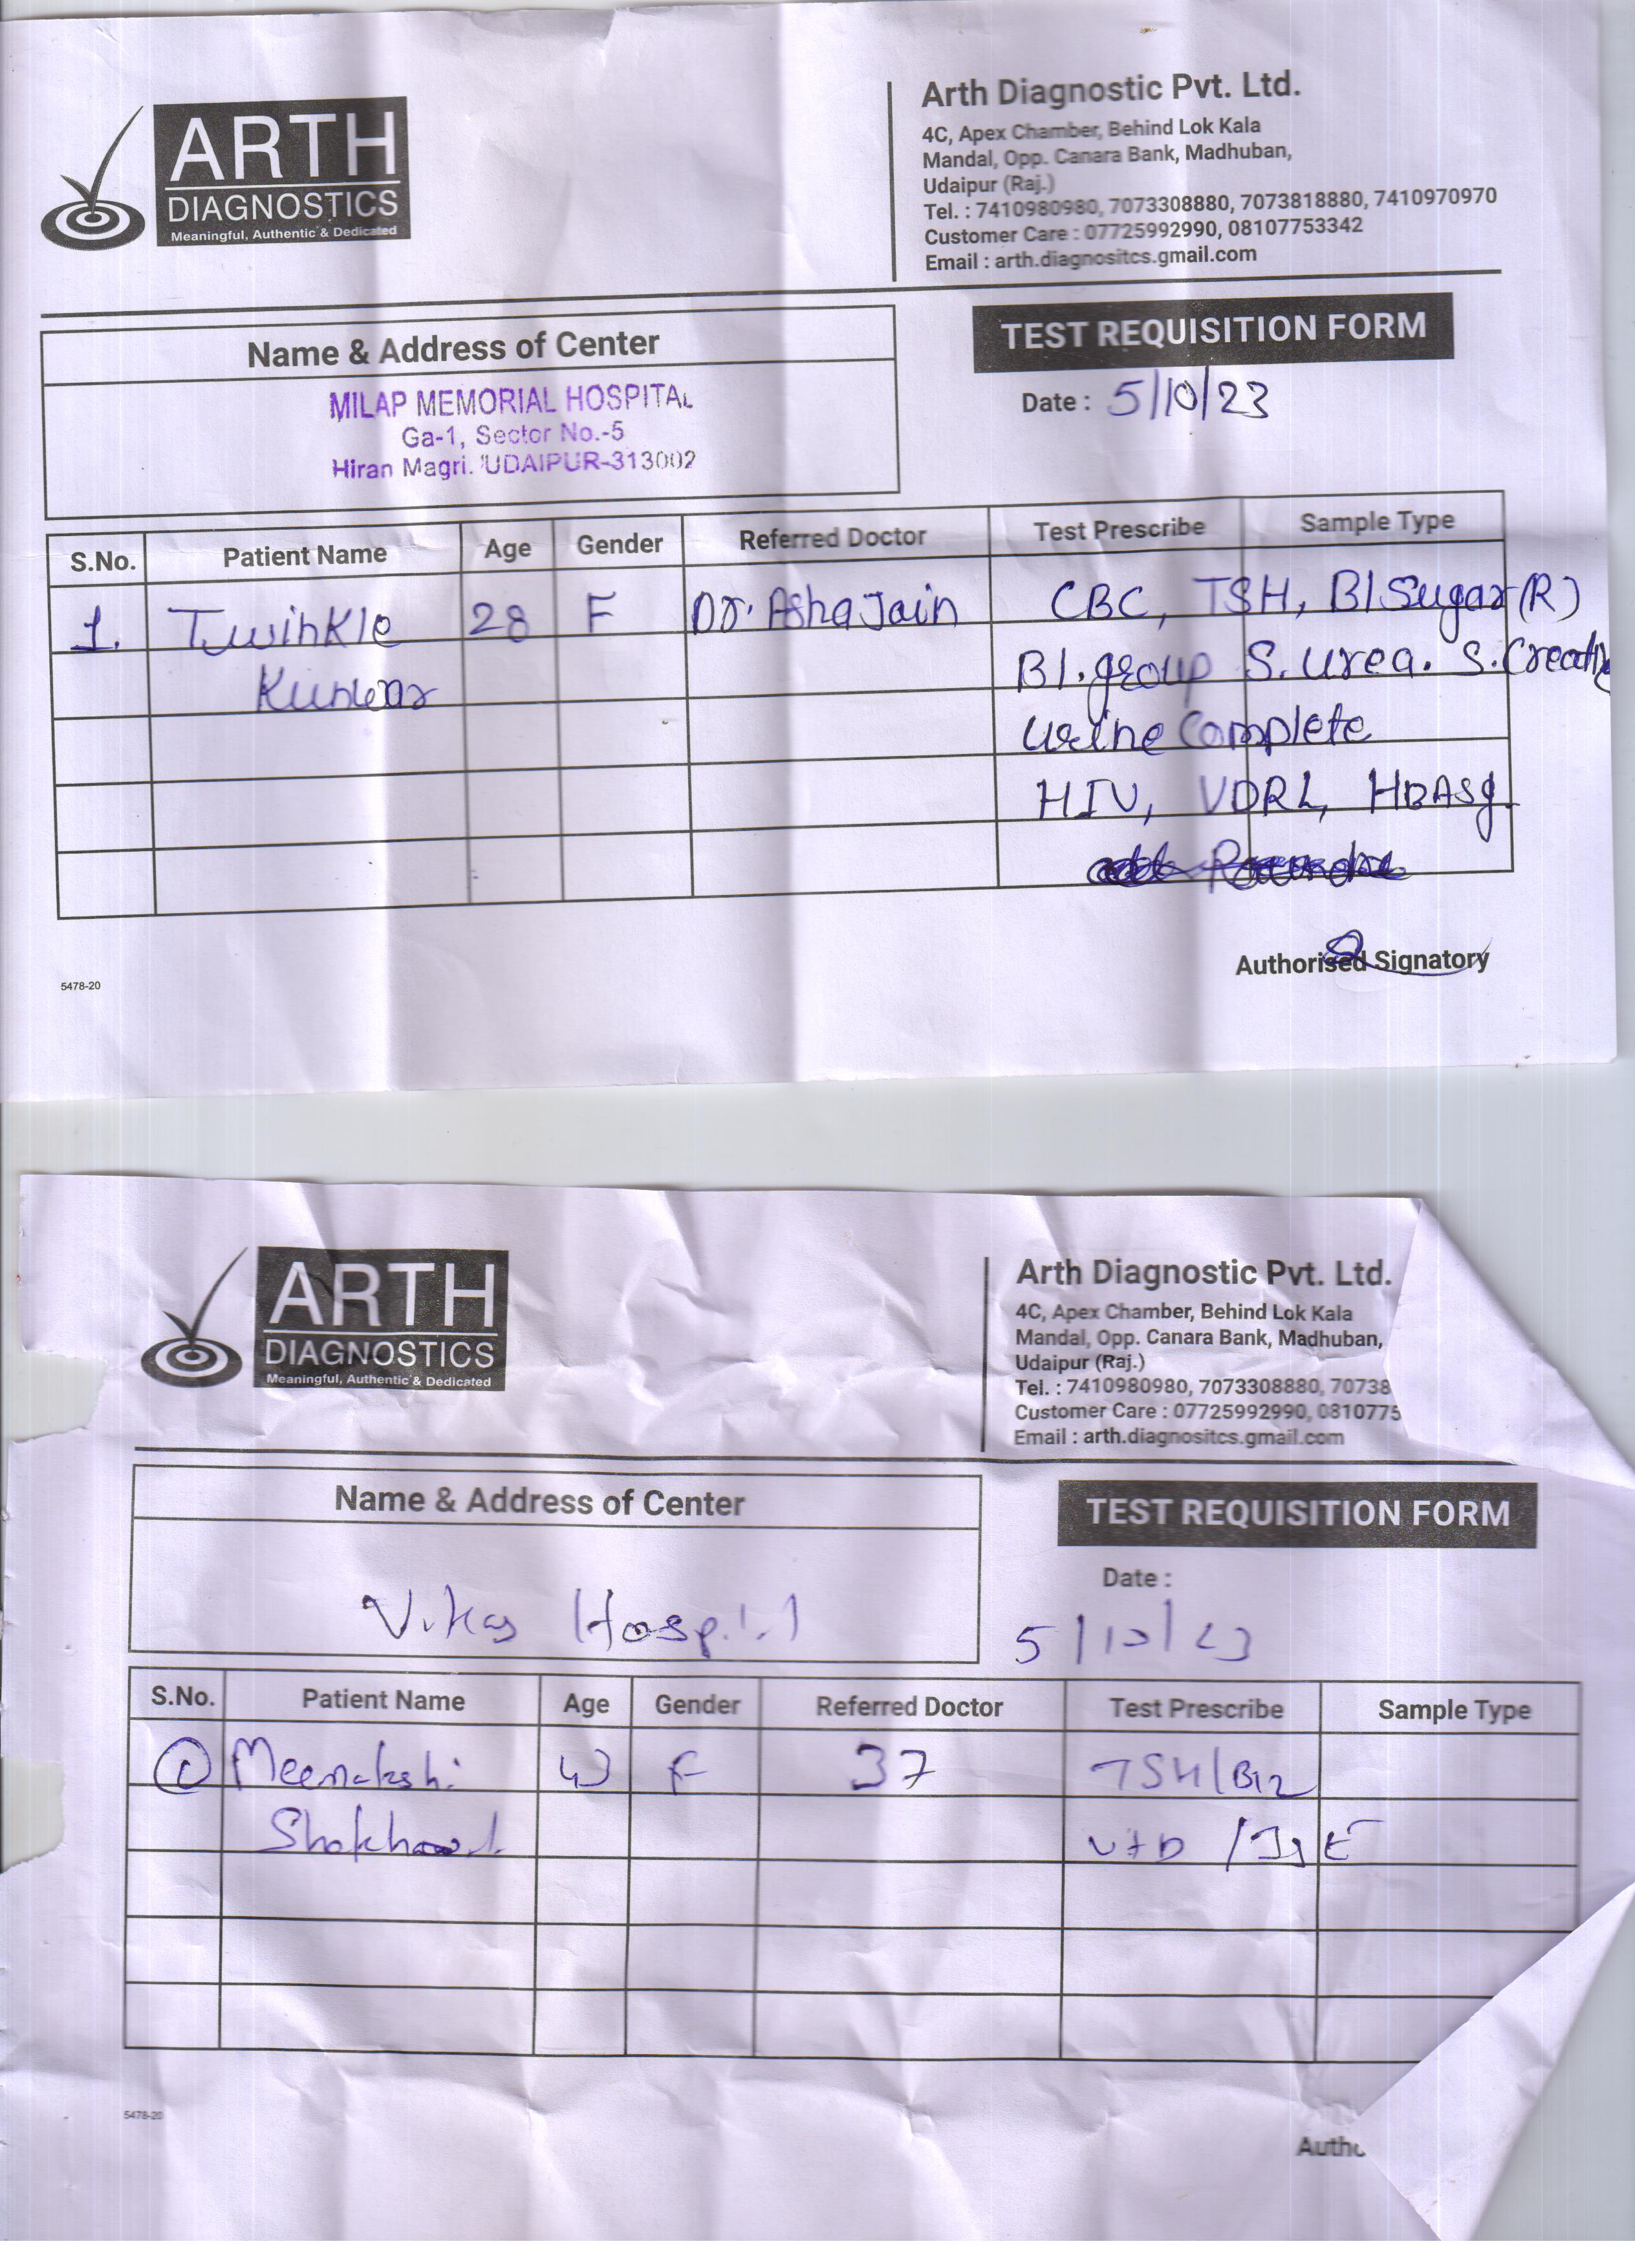 ARTH
DIAGNOSTICS
Meaningful, Authentic & Dedicated
Arth Diagnostic Pvt. Ltd.
4C, Apex Chamber, Behind Lok Kala
Mandal, Opp. Canara Bank, Madhuban,
Udaipur (Raj.)
Tel. : 7410980980, 7073308880, 7073818880, 7410970970
Customer Care : 07725992990, 08107753342
Email : arth.diagnositcs.gmail.com
Name & Address of Center
TEST REQUISITION FORM
MILAP MEMORIAL HOSPITAL
Ga-1, Sector No.-5
Hiran Magri. UDAIPUR-313002
Date : 5/10/23
S.No. Patient Name Age Gender Referred Doctor Test Prescribe Sample Type
1. Twinkle 28 F Dr. Asha Jain CBC, TSH, Bl Sugar (R)
Kunwar Bl. group S. Urea. S.
Urine Complete
HIV, VDRL, HBASg
Authorised Signatory
5478-20
ARTH
DIAGNOSTICS
Meaningful, Authentic & Dedicated
Arth Diagnostic Pvt. Ltd.
4C, Apex Chamber, Behind Lok Kala
Mandal, Opp. Canara Bank, Madhuban,
Udaipur (Raj.)
Tel. : 7410980980, 7073308880, 70738
Customer Care : 07725992990, 0810775
Email : arth.diagnositcs.gmail.com
Name & Address of Center
TEST REQUISITION FORM
Date :
Vikas Hospital
5/10/23
S.No. Patient Name Age Gender Referred Doctor Test Prescribe Sample Type
1 Meenakshi F 37 TSH/B12
/IgE
5478-20
Autho